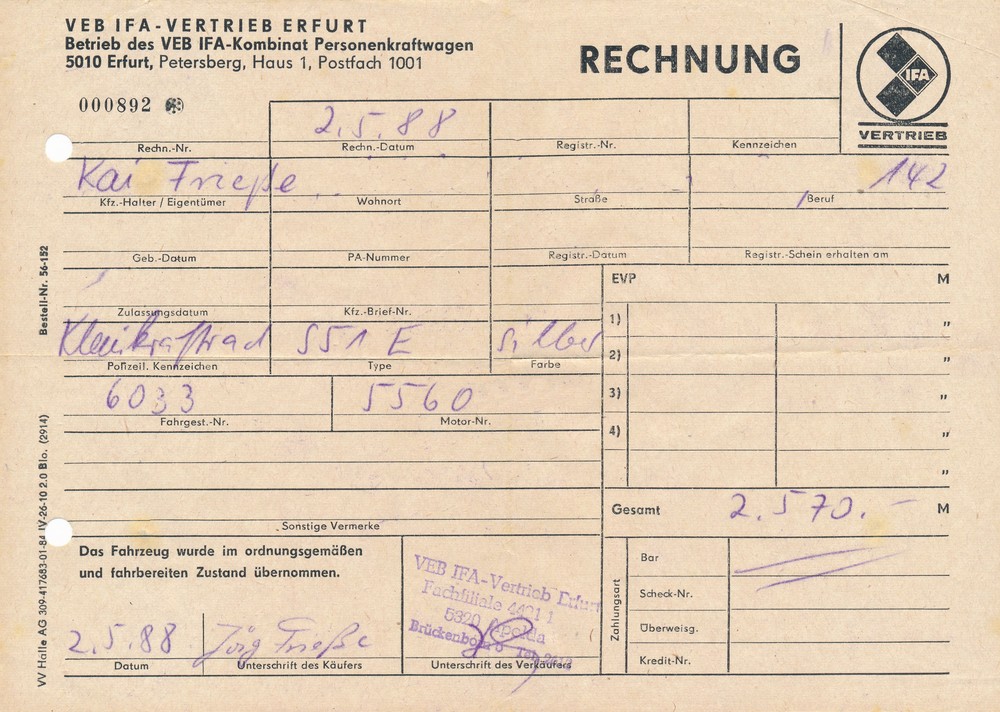 VEB IFA-VERTRIEB ERFURT
Betrieb des VEB IFA-Kombinat Personenkraftwagen
5010 Erfurt, Petersberg, Haus 1, Postfach 1001
RECHNUNG
IFA
VERTRIEB
000892
2.5.88
Rechn.-Nr. Rechn.-Datum Registr.-Nr. Kennzeichen
Kai Frieße 142
Kfz.-Halter / Eigentümer Wohnort Straße Beruf
Geb.-Datum PA-Nummer Registr.-Datum Registr.-Schein erhalten am
EVP M
Zulassungsdatum Kfz.-Brief-Nr.
1) "
Kleinkraftrad S51 E silber
2) "
Polizeil. Kennzeichen Type Farbe
3) "
6033 5560
Fahrgest.-Nr. Motor-Nr.
4) "
"
Gesamt 2.570.- M
Sonstige Vermerke
Das Fahrzeug wurde im ordnungsgemäßen
und fahrbereiten Zustand übernommen.
Zahlungsart
Bar
Scheck-Nr.
Überweisg.
Kredit-Nr.
VEB IFA-Vertrieb Erfurt
Fachfiliale 4421 1
5320 Apolda
2.5.88 Jörg Frieße
Datum Unterschrift des Käufers Unterschrift des Verkäufers
Bestell-Nr. 56-152
VV Halle AG 309-417683-01-84 IV-26-10 2.0 Blo. (2914)